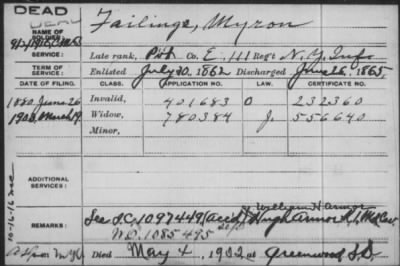 DEAD
DEAD
NAME OF SOLDIER:
Failings, Myron
SERVICE:
Late rank, Pvt Co. E, 111 Reg't N.Y. Inf
TERM OF SERVICE:
Enlisted July 30, 1862 Discharged June 26, 1865
DATE OF FILING. CLASS. APPLICATION NO. LAW. CERTIFICATE NO.
1880 June 26 Invalid, 401683 O 232360
1903 March 19 Widow, 780384 J. 556640
Minor,
ADDITIONAL SERVICES:
William H Armor
REMARKS: See I.C. 1097449 (accd) Hugh Armor
W.O. 1085495
Died May 4, 1902 at Greenwood S.D.
10-16-16